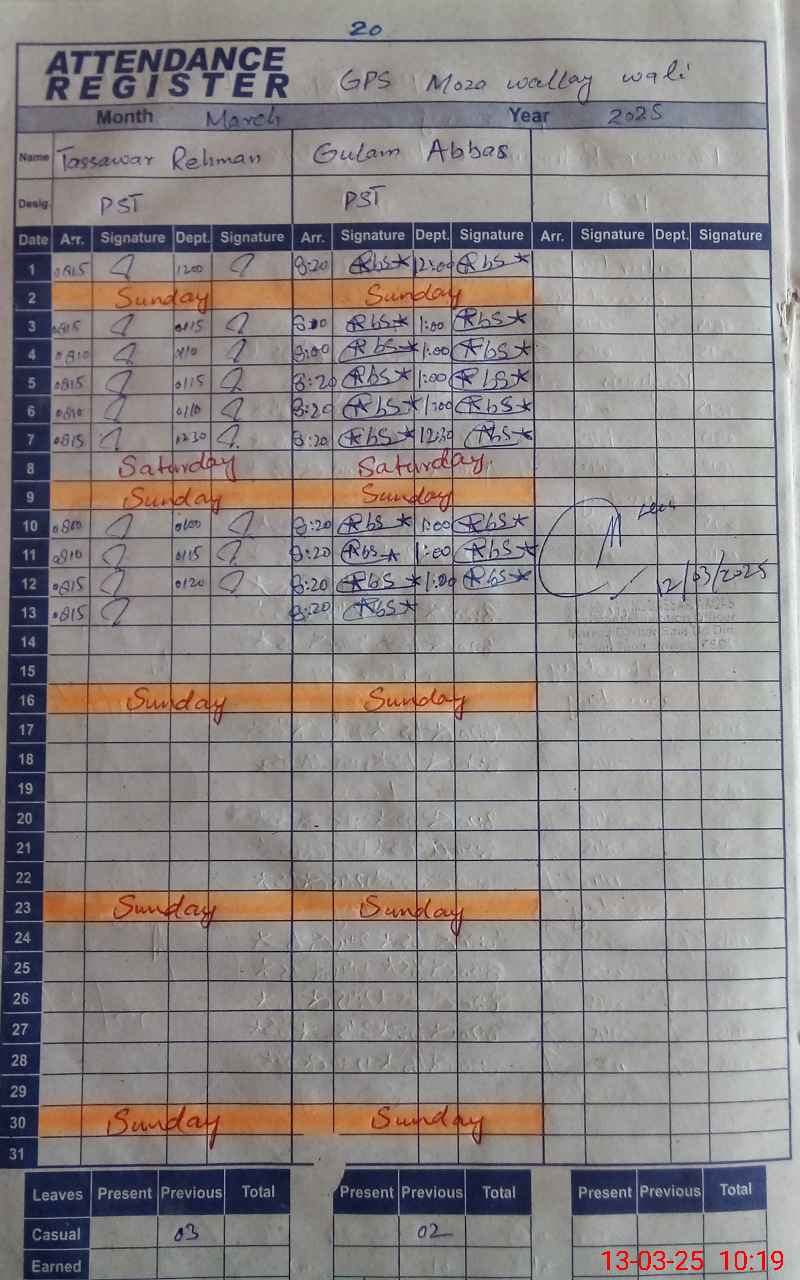 20
ATTENDANCE
REGISTER GPS Moza wallay wali
Month March Year 2025
Name Tassawar Rehman Gulam Abbas
Desig. PST PST
Date Arr. Signature Dept. Signature Arr. Signature Dept. Signature Arr. Signature Dept. Signature
1 0815 1200 8:20 Abs 12:00 Abs
2 Sunday Sunday
3 0815 0115 8:00 Abs 1:00 Abs
4 0810 8:00 Abs 1:00 Abs
5 0815 0115 8:20 Abs 1:00 Abs
6 0810 0110 8:20 Abs 1:00 Abs
7 0815 1230 8:20 Abs 12:30 Abs
8 Saturday Saturday
9 Sunday Sunday
10 0800 0100 8:20 Abs 1:00 Abs
11 0810 0115 8:20 Abs 1:00 Abs
12 0815 0120 8:20 Abs 1:00 Abs 12/03/2025
13 0815 8:20 Abs
14
15
16 Sunday Sunday
17
18
19
20
21
22
23 Sunday Sunday
24
25
26
27
28
29
30 Sunday Sunday
31
Leaves Present Previous Total Present Previous Total Present Previous Total
Casual 03 02
Earned
13-03-25 10:19